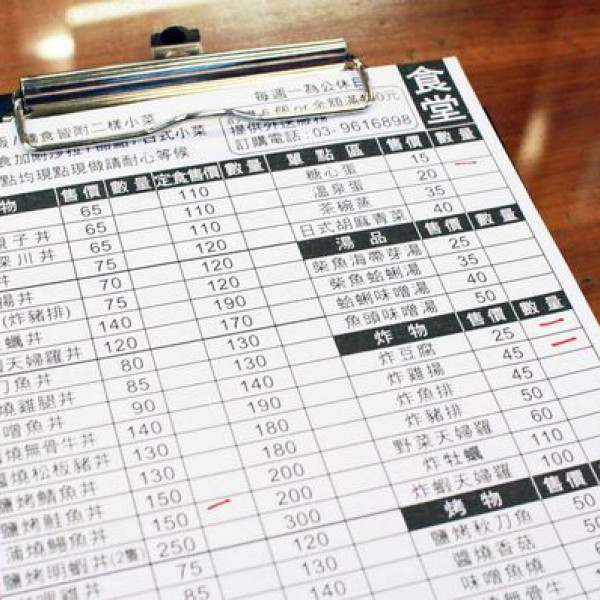 食堂
每週一為公休日
食皆附二樣小菜
提供外送服務
訂購電話：03-9616898
點均現點現做請耐心等候
物 售價 數量 定食售價 數量
65 110
親子丼 65 110
深川丼 65 110
丼 75 120
揚丼 70 120
(炸豬排) 75 190
蠣丼 140 170
天婦羅丼 120 130
刀魚丼 80 130
燒雞腿丼 85 140
噌魚丼 90 190
燒無骨牛丼 140 180
醬燒松板豬丼 130 180
鹽烤鯖魚丼 130 200
鹽烤鮭魚丼 150 200
蒲燒鰻魚丼 150 300
鹽烤明蝦丼(2隻) 250 120
哩雞丼 75 130
85 140
單點區 售價 數量
糖心蛋 15
溫泉蛋 20
茶碗蒸 35
日式胡麻青菜 40
湯品 售價 數量
柴魚海帶芽湯 25
柴魚蛤蜊湯 35
蛤蜊味噌湯 40
魚頭味噌湯 50
炸物 售價 數量
炸豆腐 25
炸雞揚 45
炸魚排 45
炸豬排 50
野菜天婦羅 60
炸牡蠣 110
炸蝦天婦羅 100
烤物 售價
鹽烤秋刀魚 50
醬燒香菇 50
味噌魚燒
燒無骨牛